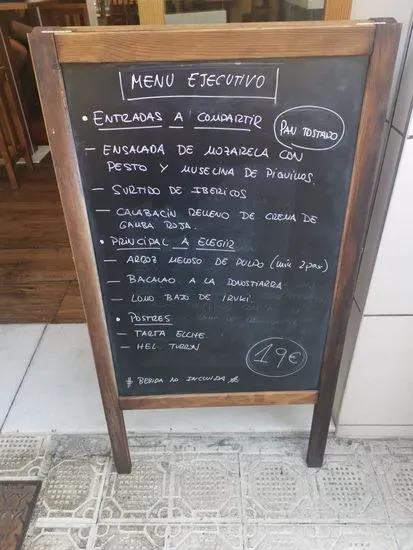 MENU EJECUTIVO
• ENTRADAS A COMPARTIR
PAN TOSTADO
– ENSALADA DE MOZARELA CON
PESTO Y MUSELINA DE PIQUILLOS.
– SURTIDO DE IBERICOS
– CALABACIN RELLENO DE CREMA DE
GAMBA ROJA.
• PRINCIPAL A ELEGIR
– ARROZ MELOSO DE PULPO (min 2pax)
– BACALAO A LA DONOSTIARRA
– LOMO BAJO DE IRUKI.
• POSTRES
– TARTA ELCHE.
– HEL. TURRON
19€
# BEBIDA NO INCLUIDA #